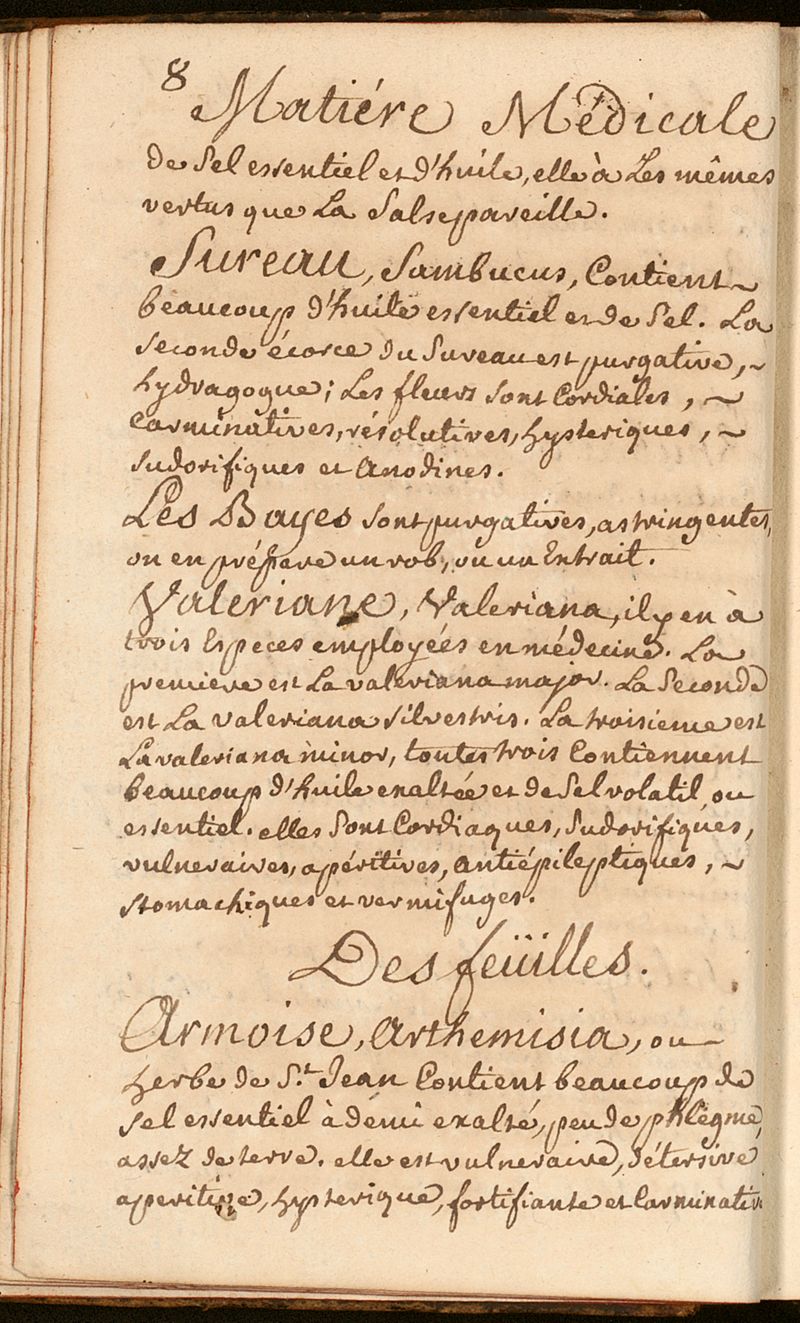 8
Matiére Médicale
de Sel essentiel et d'huile, elle à Les mêmes
vertus que La Salsepareille.
Sureau, Sambucus, Contient ~
beaucoup d'huile essentiel et de Sel. La
Seconde écorce du Sureau est purgative, ~
hydragogue; Les fleurs sont Cordiales, ~
Carminatives, résolutives, hysteriques, ~
Sudorifiques et Anodines.
Les Bayes sont purgatives, astringentes,
on en prépare un rob, ou un Extrait.
Valeriane, Valeriana, il y en à
trois Especes employées en médecine. La
premiere est La valeriana major. La Seconde
est La valeriana silvestris. La troisieme est
La valeriana minor, toutes trois Contiennent
beaucoup d'huile exaltée et de Sel volatil, ou
essentiel. elles Sont Cordiaques, Sudorifiques,
vulneraires, apéritives, Antiépileptiques, ~
Stomachiques et vermifuges.
Des feüilles.
Armoise, Arthemisia, ou ~
herbe de St. Jean Contient beaucoup de
Sel essentiel à démi exalté, peu de phlegme,
assez de terre. elle est vulneraire, détersive
aperitive, hysterique, fortifiante et Carminativ